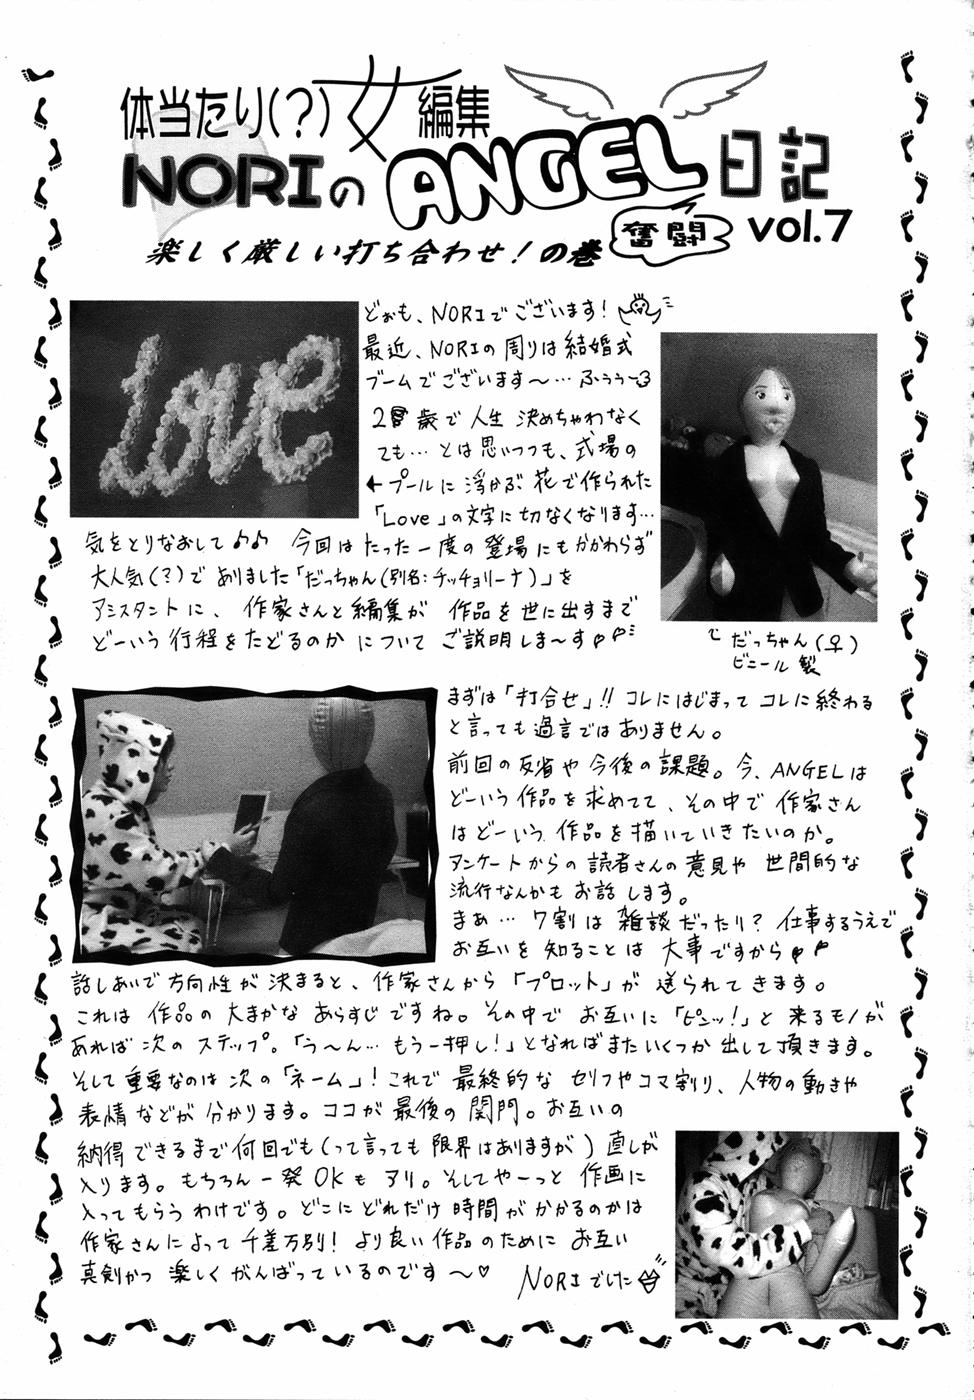 体当たり(?)女編集
NORIのANGEL日記
奮闘
vol.7
楽しく厳しい打ち合わせ!の巻
どぉも、NORIでございます!
最近、NORIの周りは結婚式
ブームでございます〜…ふぅぅ〜
歳で人生決めちゃわなく
ても…とは思いつつも、式場の
←プールに浮かぶ花で作られた
「Love」の文字に切なくなります…
気をとりなおして♪♪ 今回はたった一度の登場にもかかわらず
大人気(?)でありました「だっちゃん(別名:チッチョリーナ)」を
アシスタントに、作家さんと編集が作品を世に出すまで
どーいう行程をたどるのかについてご説明しま〜す
だっちゃん(♀)
ビニール製
まずは「打合せ」!! コレにはじまってコレに終わる
と言っても過言ではありません。
前回の反省や今後の課題。今、ANGELは
どーいう作品を求めてて、その中で作家さん
はどーいう作品を描いていきたいのか。
アンケートからの読者さんの意見や世間的な
流行なんかもお話します。
まぁ…7割は雑談だったり?仕事するうえで
お互いを知ることは大事ですから
話しあいで方向性が決まると、作家さんから「プロット」が送られてきます。
これは作品の大まかなあらすじですね。その中でお互いに「ピンッ!」と来るモノが
あれば次のステップ。「う〜ん…もう一押し!」となればまたいくつか出して頂きます。
そして重要なのは次の「ネーム」!これで最終的なセリフやコマ割り、人物の動きや
表情などが分かります。ココが最後の関門。お互いの
納得できるまで何回でも(って言っても限界はありますが)直しが
入ります。もちろん一発OKもアリ。そしてや〜っと作画に
入ってもらうわけです。どこにどれだけ時間がかかるのかは
作家さんによって千差万別!より良い作品のためにお互い
真剣かつ楽しくがんばっているのです〜♡
NORIでした
love